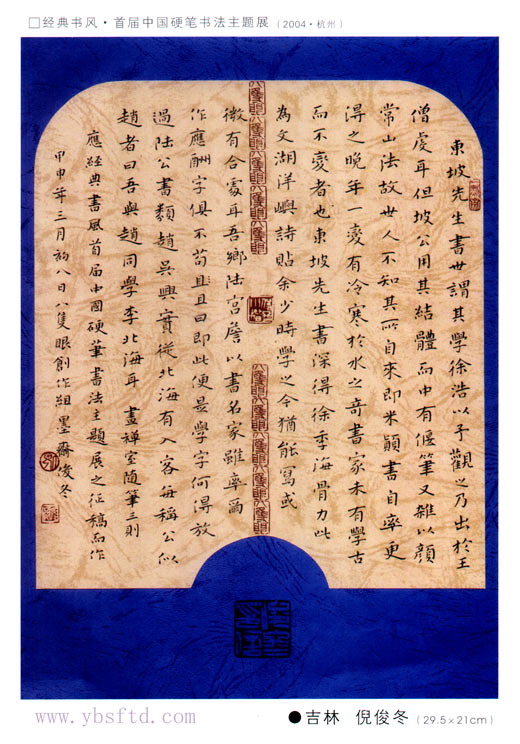 □经典书风·首届中国硬笔书法主题展（2004·杭州）
東坡先生書世謂其學徐浩以予觀之乃出於王
僧虔耳但坡公用其結體而中有偃筆又雜以顏
常山法故世人不知其所自來即米顛書自率更
得之晚年一變有冷寒於水之奇書家未有學古
而不變者也東坡先生書深得徐季海骨力此
為文湖洋嶼詩貼余少時學之今猶能寫或
微有合處耳吾鄉陸宮詹以書名家雖率爾
作應酬字俱不苟且且曰即此便是學字何得放
過陸公書類趙吳興實從北海有入客每稱公似
趙者曰吾與趙同學李北海耳 畫禪室随筆三則
應經典書風首届中國硬筆書法主題展之征稿而作
甲申年三月初八日八隻眼創作組墨齋俊冬
www.ybsftd.com
●吉林 倪俊冬（29.5×21cm）